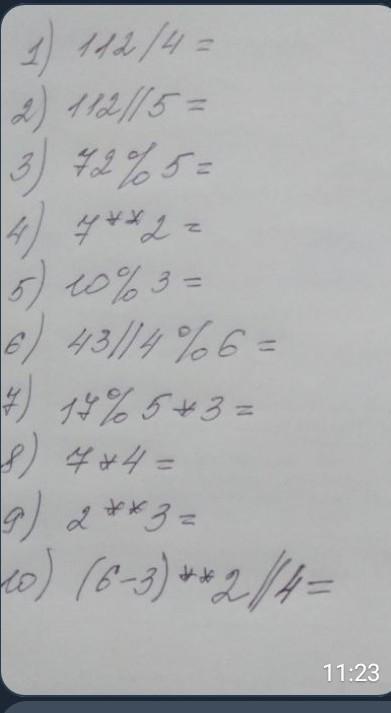 1) 112/4 =
2) 112//5 =
3) 72%5 =
4) 7**2 =
5) 10%3 =
6) 43//4%6 =
7) 17%5*3 =
8) 7*4 =
9) 2**3 =
10) (6-3)**2//4 =
11:23